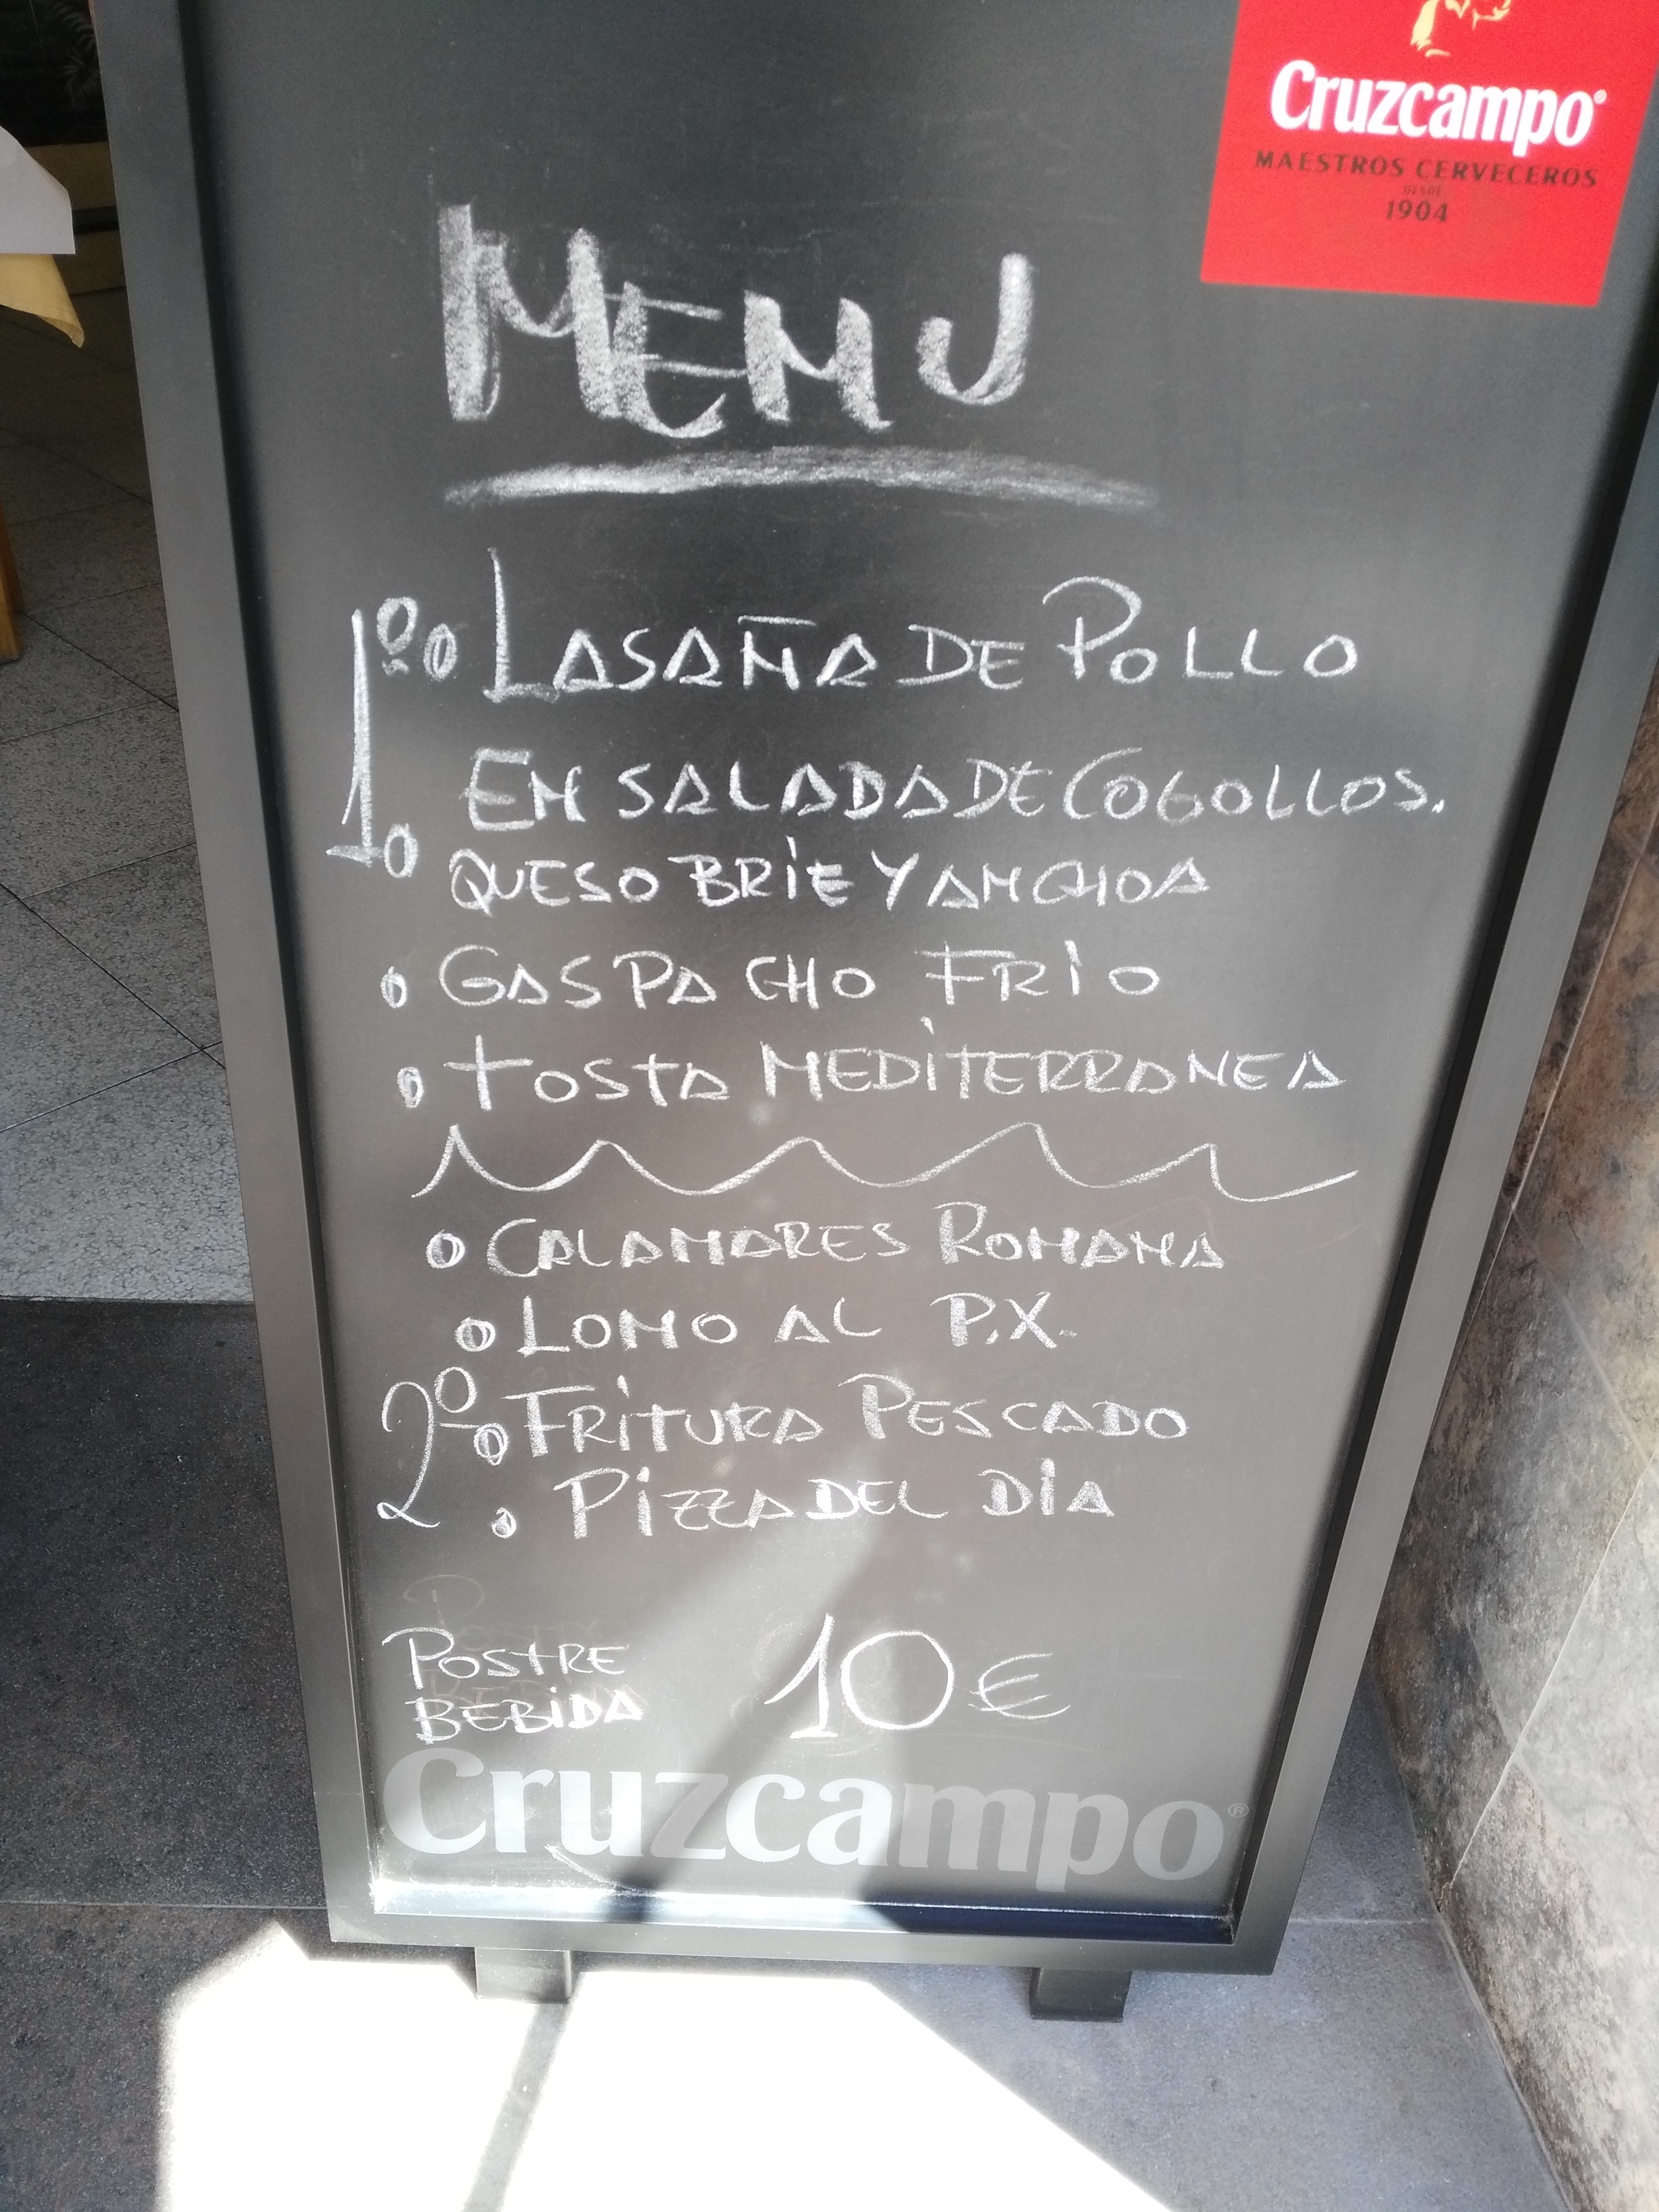 Cruzcampo
MAESTROS CERVECEROS
DESDE
1904
MENU
1º
LASAÑA DE POLLO
ENSALADA DE COGOLLOS.
QUESO BRIE Y ANCHOA
GASPACHO FRIO
TOSTA MEDITERRANEA
CALAMARES ROMANA
LOMO AL P.X.
2º
FRITURA PESCADO
PIZZA DEL DIA
POSTRE
BEBIDA
10€
Cruzcampo®